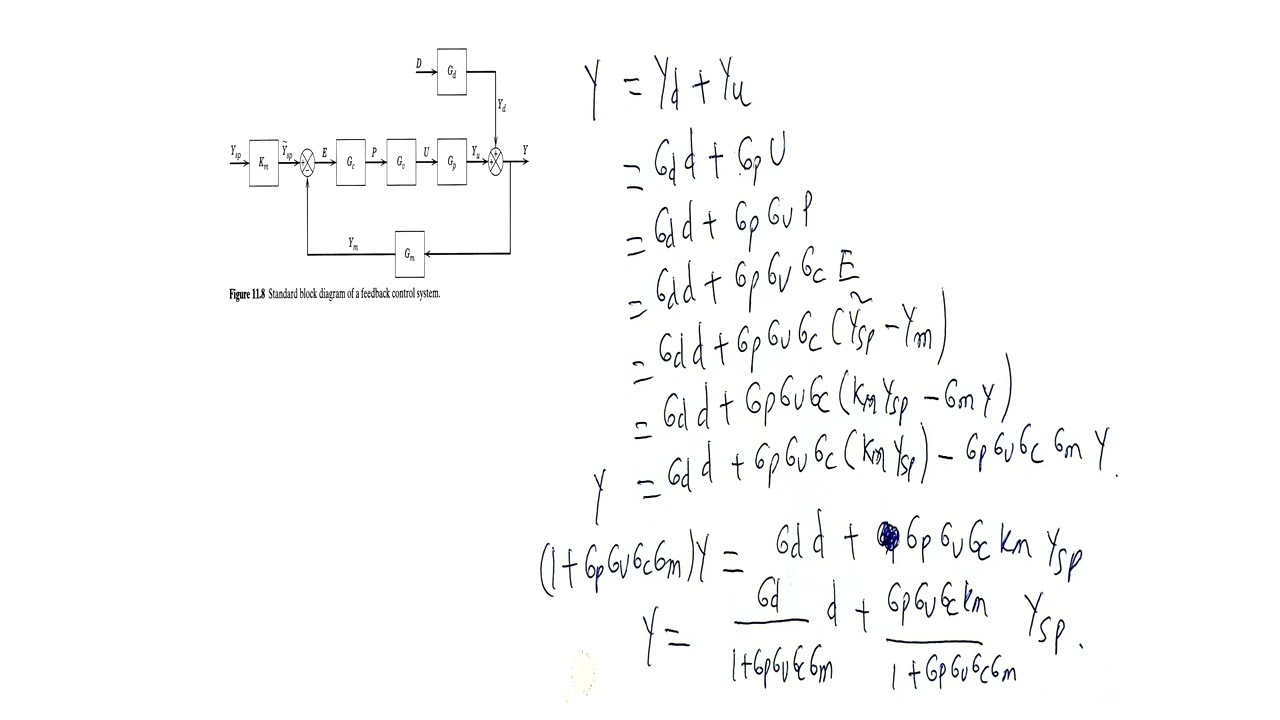 D G_d
Y_d
Y_sp K_m Ỹ_sp + − E G_c P G_v U G_p Y_u + + Y
Y_m G_m
Figure 11.8 Standard block diagram of a feedback control system.
Y = Yd + Yu
= Gd d + Gp U
= Gd d + Gp Gv P
= Gd d + Gp Gv Gc E
= Gd d + Gp Gv Gc (Ỹsp − Ym)
= Gd d + Gp Gv Gc (Km Ysp − Gm Y)
Y = Gd d + Gp Gv Gc (Km Ysp) − Gp Gv Gc Gm Y.
(1 + Gp Gv Gc Gm) Y = Gd d + Gp Gv Gc Km Ysp
Y = Gd / (1 + Gp Gv Gc Gm) d + Gp Gv Gc Km / (1 + Gp Gv Gc Gm) Ysp.